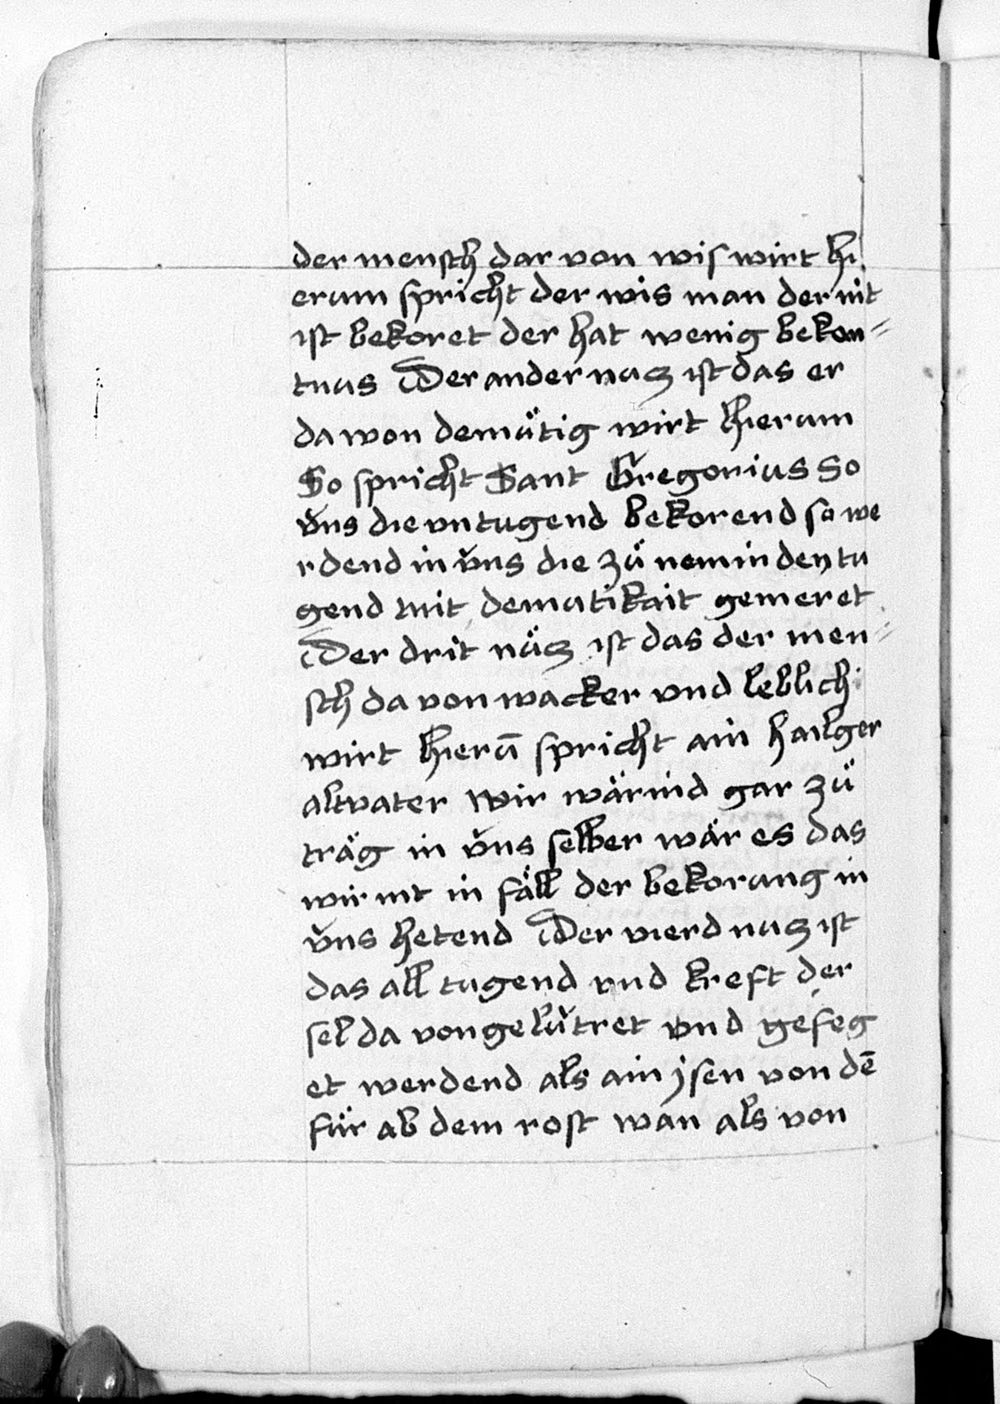 der mensch dar von wis wirt hi
erum spricht der wis man der nit
ist bekoret der hat wenig bekon⸗
tnus Der ander nucz ist das er
da won demuͤtig wirt hierum
So spricht Sant Gregorius So
v̈ns die vntugend bekorend so we
rdend in v̈ns die zuͤ neminden tu
gend mit demutikait gemeret
Der drit nücz ist das der men⸗
sch da von wacker vnd leblich
wirt hierū spricht ain hailger
altvater wir wärind gar zuͤ
träg in v̈ns selber wär es das
wir nit in fäll der bekorung in
v̈ns hetend Der vierd nucz ist
das all tugend vnd kreft der
sel da von gelütret vnd gefeg
et werdend als ain jsen von dē
für ab dem rost wan als von